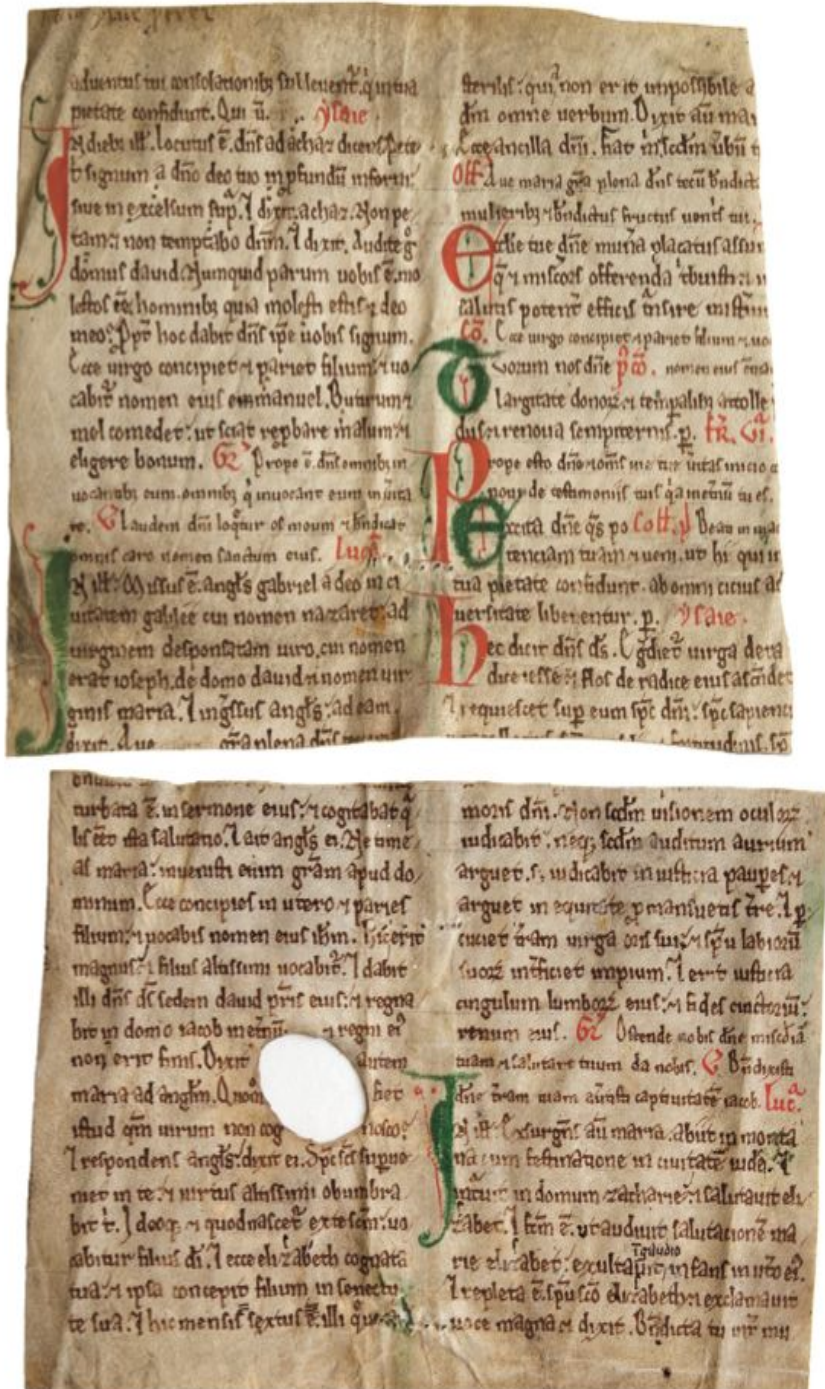 aduentus tui consolationibꝫ subleuent᷑. q̇ in tua
pietate confidunt. Qui ū. ysaie.
IN diebꝫ ill̃. Locutus ē. dñs ad achaz dicens. Pete
t᷑ signum a dño deo tuo in ꝓfundū inferni
siue in excelsum sup̃. ⁊ dixit. achaz. Non pe
tam: ⁊ non temptabo dñm. ⁊ dixit. Audite g̊
domus dauid. Numquid parum uobis ē. mo
lestos eē. hominibꝫ quia molesti estis ⁊ deo
meo? Ppt̃ hoc dabit dñs ipe uobis signum.
Ecce uirgo concipiet ⁊ pariet filium: ⁊ uo
cabit᷑ nomen eius emmanuel. Buturum ⁊
mel comedet: ut sciat rep̱bare malum: ⁊
eligere bonum. Gr̃ Prope ē. dñs omnibꝫ in
uocantibꝫ eum. omnibꝫ q̇ inuocant eum in uita
te. V Laudem dñi loq̃tur os meum ⁊ bñdicat
omnis caro nomen sanctum eius. Luc̃.
IN ill̃. Missus ē. angl̃s gabriel a deo in ci
uitatem galilee cui nomen nazaret: ad
uirginem desponsatam uiro. cui nomen
erat ioseph. de domo dauid ⁊ nomen uir
ginis maria. ⁊ ings̃sus angl̃s: ad eam.
dixit. Aue gr̃a plena dñs
sterilis: qui non erit impossibile a
dm̃ omne uerbum. Dixit aū mar
Ecce ancilla dñi. fiat m̊ scdm̃ ūbū t
Off̃ Aue maria gr̃a plena dñs tecū bñdict
mulieribꝫ ⁊ bñdictus fructus uentris tui.
Ecclie tue dñe mun̄a placatus assum
q̃ ⁊ misc̃ors offerenda tbuisti: ⁊ n
salutis potent᷑ efficis t̃nsire mist̃ium
Cō. Ecce uirgo concipiet ⁊ pariet filium ⁊ uoc
Vorum nos dñe p̊ cō. nomen eius ema
Largitate donoꝝ: ⁊ tempaliby attolle
dus: ⁊ renoua sempiternis. ꝑ. fr̃. Vi.
Prope esto dñe ⁊ om̃s uie tue ūitas inicio c
nouy de testimoniis tuis q̇a in et̃nū tu es.
Excita dñe q̃s po Coll̃. ꝟ Beati in mac
tenciam tuam ⁊ ueni. ut hi qui in
tua pietate confidunt. ab omni cicius ad
uersitate liberentur. ꝑ. ysaie.
Hec dicit dñs ds̃. Eg̃diet᷑ uirga de ra
dice iesse: ⁊ flos de radice eius ascēdet
⁊ requiescet sup̱ eum spc̃ dñi: spc̃ sapienci
turbata ē. in sermone eius: ⁊ cogitabat q̃
lis ēet ista salutatio. ⁊ ait angl̃s ei. Ne time
as maria: inuenisti enim grãm apud do
minum. Ecce concipies in utero ⁊ paries
filium: ⁊ uocabis nomen eius ihm̃. hic erit
magnus: ⁊ filius altissimi uocabit᷑. ⁊ dabit
illi dñs ds̃ sedem dauid pr̃is eius: ⁊ regna
bit in domo iacob in et̃nū: ⁊ regni ei᷒
non erit finis. Dixit autem
maria ad anglm̃. Quom̊ fiet
istud qm̃ uirum non cog nosco?
⁊ respondens angl̃s: dixit ei. Spc̃ sc̃s sup̱ue
niet in te: ⁊ uirtus altissimi obumbra
bit t᷑. Ideoqꝫ ⁊ quod nascet᷑ ex te sc̃m: uo
cabitur filius di̅. ⁊ ecce elizabeth cognata
tua: ⁊ ipsa concepit filium in senectu
te sua. ⁊ hic mensis sextus ē. illi que
moris dñi. Non scdm̃ uisionem oculoꝝ
iudicabit: neqꝫ scdm̃ auditum aurium
arguet. s; iudicabit in iusticia paup̱es: ⁊
arguet in equitate ꝓ mansuetis tr̃e. ⁊ ꝑ
cuciet tr̃am uirga oris sui: ⁊ sp̃u labioꝝ
suoꝝ int̃ficiet impium. ⁊ erit iusticia
cingulum lumboꝝ eius: ⁊ fides cinctoriū:
renum eius. Gr̃ Ostende nobis dñe misc̃diā
tuam ⁊ salutare tuum da nobis. V Bñdixisti
dñe tr̃am tuam au̅tisti captiuitatē iacob. Luc̃.
IN ill̃. Exurgñs aū maria. abiit in monta
na cum festinatione in ciuitatē iuda. ⁊
intauit in domum zacharie: ⁊ salutauit eli
zabet. ⁊ fcm̃ ē. ut audiuit salutacionē ma
rie elizabet: exultauit in gaudio infans in ut̊o ei᷒.
⁊ repleta ē. sp̃u sc̃o elizabeth: ⁊ exclamauit
uoce magna ⁊ dixit. Bñdicta tu int᷑ mu